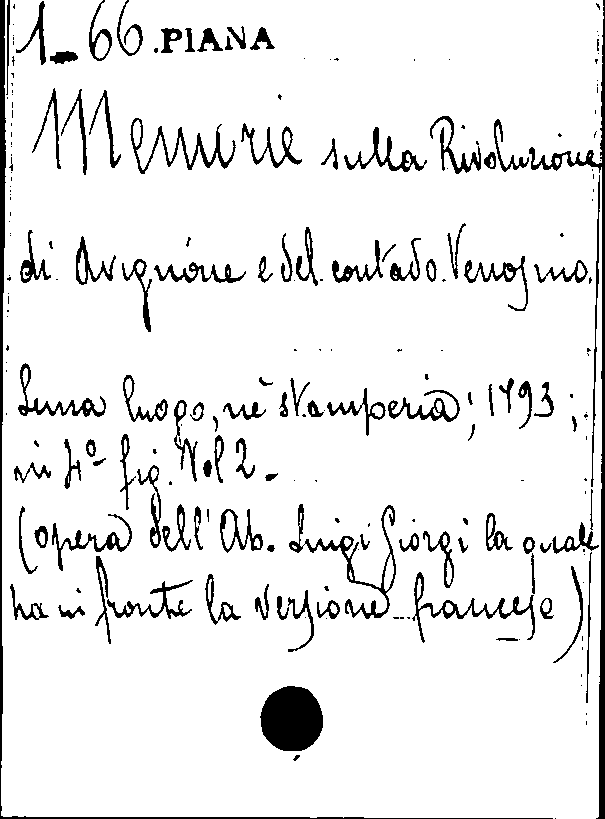 1-66.PIANA
Memorie sulla Rivoluzione
di Avignone e del contado Venosino.
Senza luogo, nè stamperia; 1793;
in 4º fig. Vol 2.
(opera dell' Ab. Luigi Giorgi la quale
ha in fronte la versione francese)